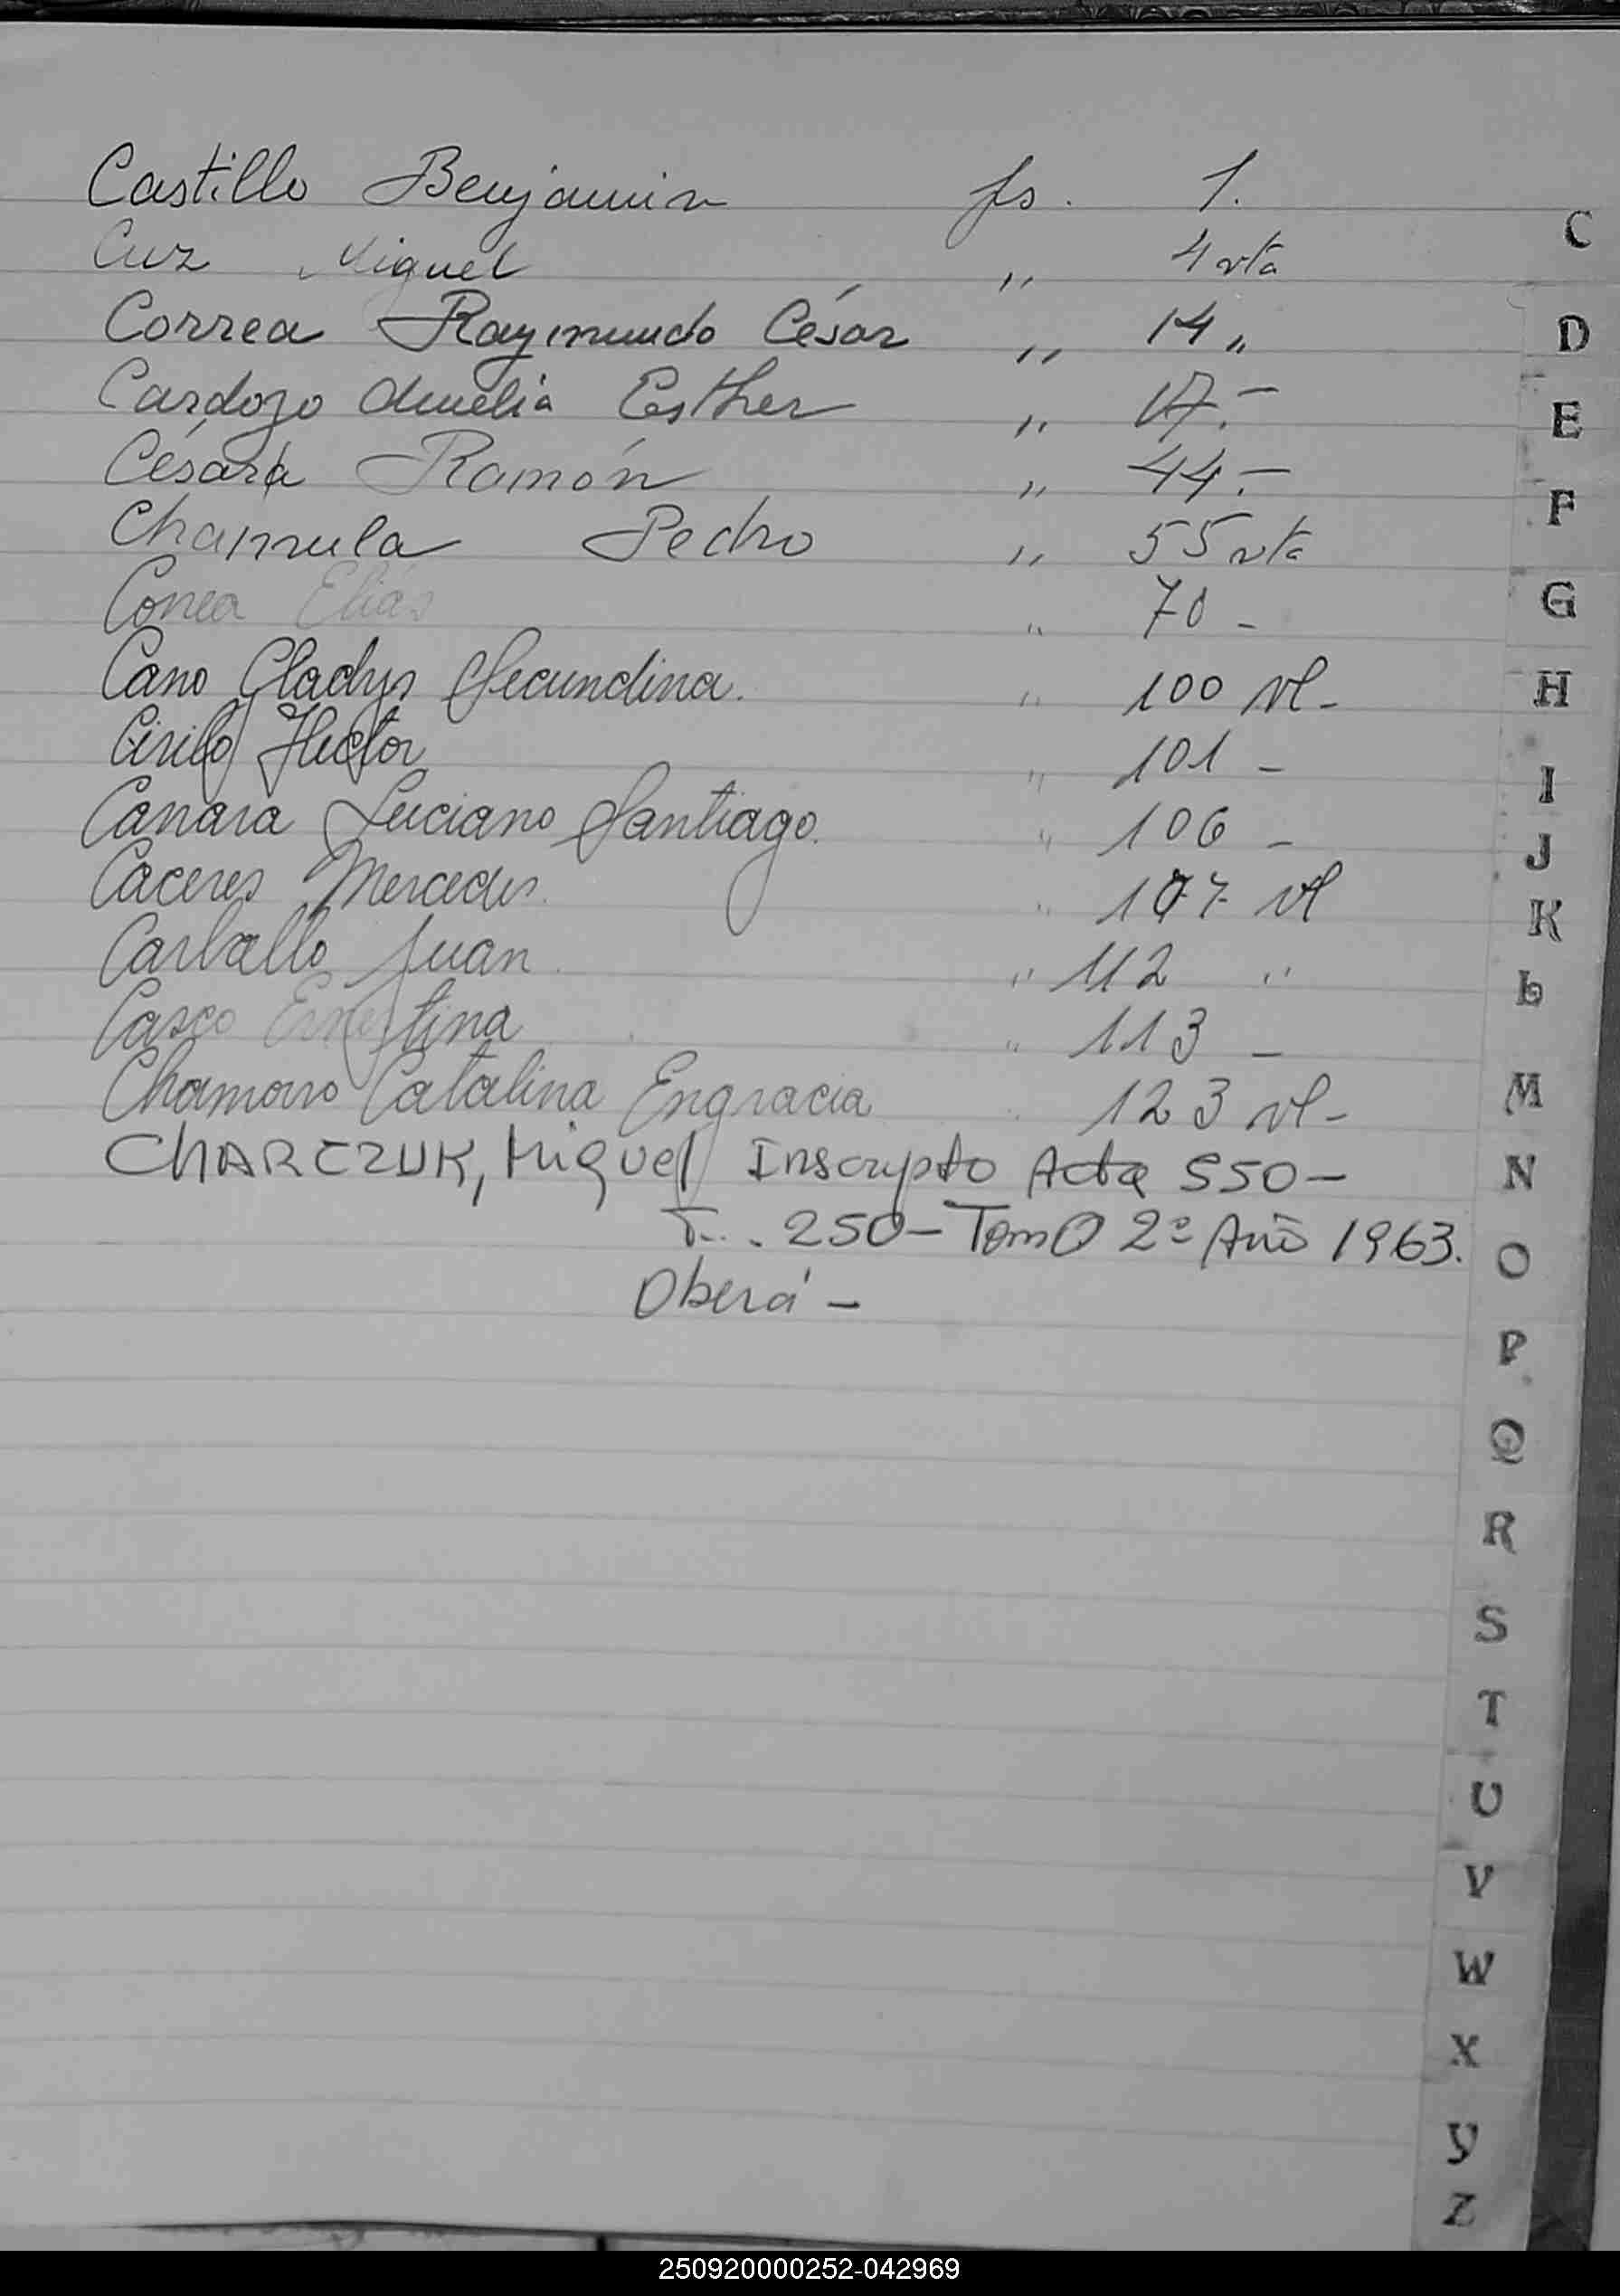 Castillo Benjamin fs. 1.
Cruz Miguel " 4 vta
Correa Raymundo César " 14 "
Cardozo Amelia Esther " 17.-
Césara Ramón " 44.-
Chamula Pedro " 55 vta
Correa Elías " 70 -
Cano Gladys Secundina. " 100 vt -
Cirilo Hector " 101 -
Canara Luciano Santiago. " 106 -
Caceres Mercedes. " 107 vt
Carballo Juan. " 112 "
Casco Ernestina " 113 -
Chamorro Catalina Engracia " 123 vt -
CHARCZUK, Miguel Inscripto Acta 550 -
T... 250 - Tomo 2º Año 1963.
Oberá -
C
D
E
F
G
H
I
J
K
L
M
N
O
P
Q
R
S
T
U
V
W
X
Y
Z
250920000252-042969